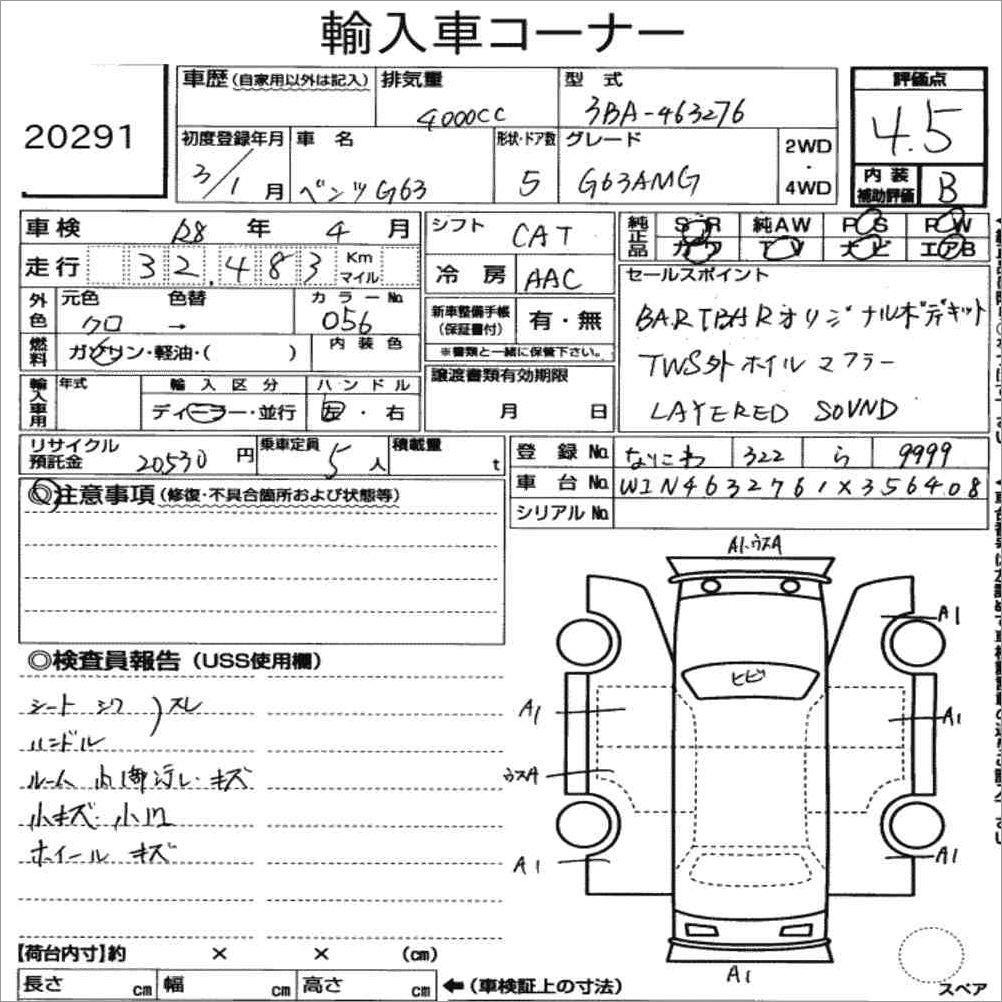 輸入車コーナー
20291
車歴 (自家用以外は記入)
排気量
4000cc
型 式
3BA-463276
評価点
4.5
初度登録年月
3/1 月
車 名
ベンツ G63
形状・ドア数
5
グレード
G63AMG
2WD
・
4WD
内 装
補助評価
B
車検 R8 年 4 月
走行 32,483 Km
マイル
シフト CAT
冷 房 AAC
純正品
SR 純AW PS PW
カワ TV ナビ エアB
外色
元色 色替 カラーNo.
クロ → 056
燃料
ガソリン・軽油・( )
内 装 色
新車整備手帳
(保証書付)
有・無
※書類と一緒に保管下さい。
セールスポイント
BARTBARオリジナルボディキット
TWS外ホイル マフラー
LAYERED SOUND
輸入車用
年式
輸 入 区 分
ディーラー・並行
ハ ン ド ル
左・右
譲渡書類有効期限
月 日
リサイクル
預託金
20530 円
乗車定員
5 人
積載量
t
登 録 No. 322 ら 9999
車 台 No. W1N4632761X356408
シリアル No.
◎注意事項 (修復・不具合箇所および状態等)
◎検査員報告 (USS使用欄)
シート シワ )スレ
ハンドル
ルーム 内 汚レ・キズ
小キズ・小凹
ホイール キズ
A1、ウスA
A1
ヒビ
A1
A1
ウスA
A1
A1
A1
【荷台内寸】約 × × (cm)
長さ cm 幅 cm 高さ cm ←(車検証上の寸法)
スペア